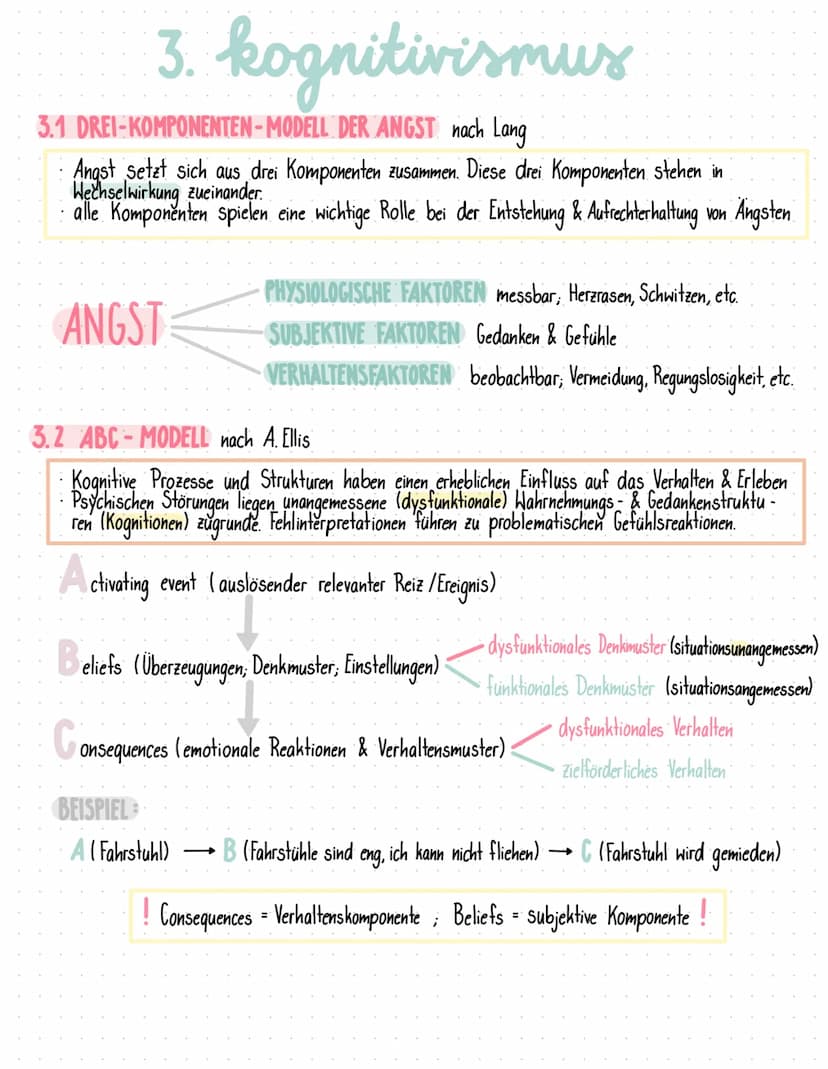 3. kognitivismus
3.1 DREI-KOMPONENTEN-MODELL DER ANGST nach Lang
· Angst setzt sich aus drei Komponenten zusammen. Diese drei Komponenten stehen in
Wechselwirkung zueinander.
· alle Komponenten spielen eine wichtige Rolle bei der Entstehung & Aufrechterhaltung von Ängsten
PHYSIOLOGISCHE FAKTOREN messbar; Herzrasen, Schwitzen, etc.
ANGST
SUBJEKTIVE FAKTOREN Gedanken & Gefühle
VERHALTENSFAKTOREN beobachtbar; Vermeidung, Regungslosigkeit, etc.
3.2 ABC-MODELL nach A. Ellis
· Kognitive Prozesse und Strukturen haben einen erheblichen Einfluss auf das Verhalten & Erleben
· Psychischen Störungen liegen unangemessene (dysfunktionale) Wahrnehmungs- & Gedankenstruktu-
ren (Kognitionen) zugrunde. Fehlinterpretationen führen zu problematischen Gefühlsreaktionen.
Activating event (auslösender relevanter Reiz/Ereignis)
dysfunktionales Denkmuster (situationsunangemessen)
Beliefs (Überzeugungen; Denkmuster; Einstellungen)
funktionales Denkmuster (situationsangemessen)
dysfunktionales Verhalten
Consequences (emotionale Reaktionen & Verhaltensmuster)
zielförderliches Verhalten
BEISPIEL:
A (Fahrstuhl) → B (Fahrstühle sind eng, ich kann nicht fliehen) → C (Fahrstuhl wird gemieden)
! Consequences = Verhaltenskomponente ; Beliefs = subjektive Komponente !